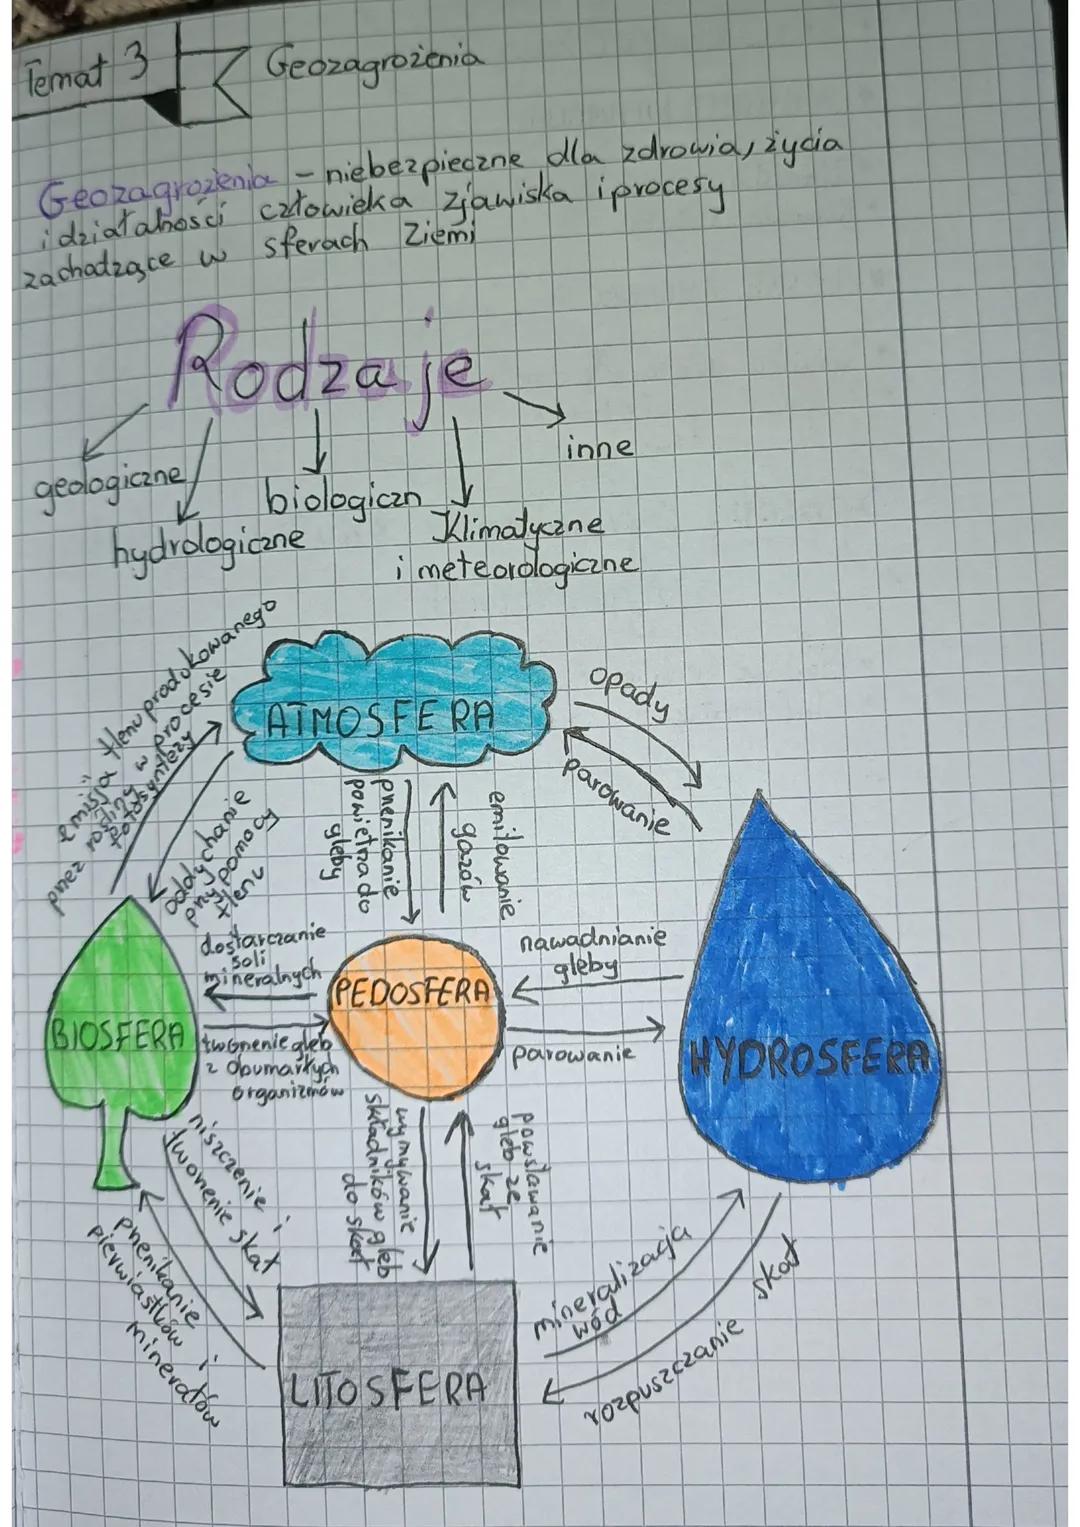 Temat 3
Geozagrożenia
Geozagrożenia - niebezpieczne dla zdrowia, życia
i działalności człowieka zjawiska i procesy
zachodzące w sferach Ziemi
Rodzaje
geologiczne
hydrologiczne
biologiczn
Klimatyczne
i meteorologiczne
inne
emisja tlenu produkowanego
przez rośliny w procesie
fotosyntezy
ATMOSFERA
opady
parowanie
oddychanie
przy pomocy
tlenu
przenikanie
powietrza do
gleby
emitowanie
gazów
dostarczanie
soli
mineralnych
nawadnianie
gleby
BIOSFERA
PEDOSFERA
HYDROSFERA
tworzenie gleb
z obumarłych
organizmów
parowanie
niszczenie i
tworzenie skał
wymywanie
składników gleb
do skał
powstawanie
gleb ze
skał
przenikanie
pierwiastków i
minerałów
mineralizacja
wód
rozpuszczanie skał
LITOSFERA